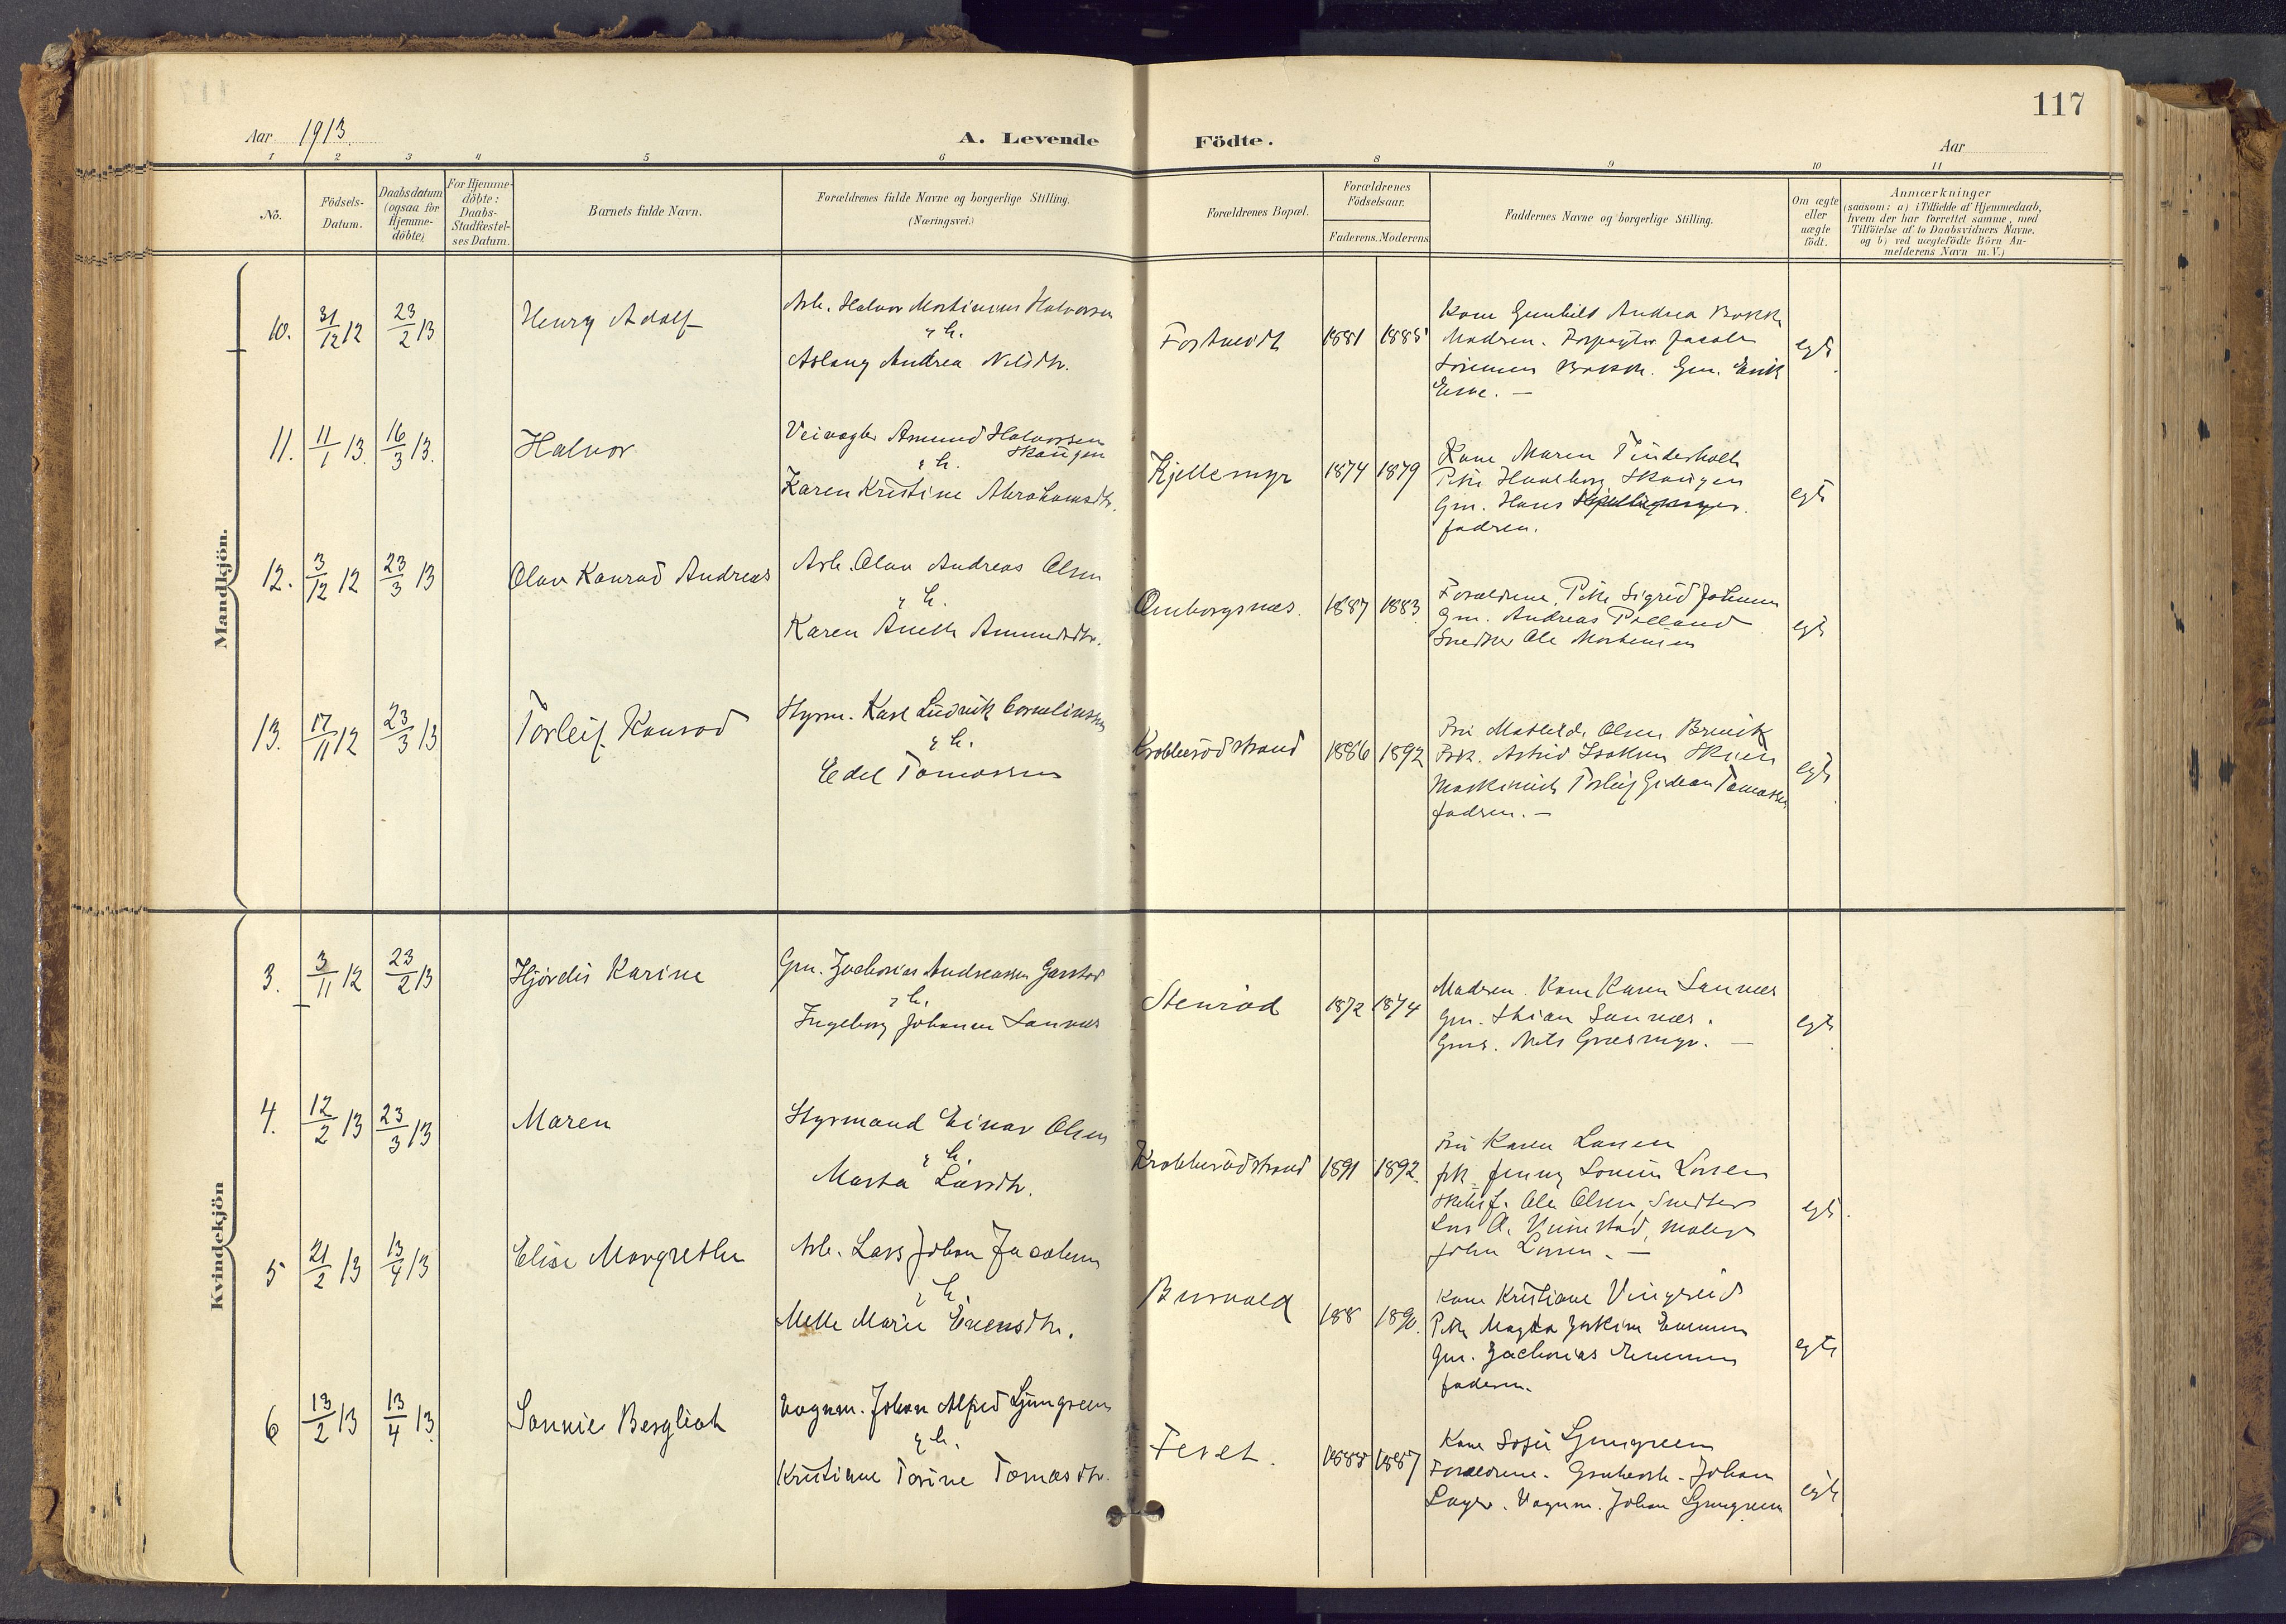 117
Aar 1913.
A. Levende Födte.
Aar
1 2 3 4 5 6 8 9 10 11
No.
Födsels-
Datum.
Daabsdatum
(ogsaa for
Hjemme-
döbte)
For Hjemme-
döbte:
Daabs-
Stadfæstel-
ses Datum.
Barnets fulde Navn.
Forældrenes fulde Navne og borgerlige Stilling.
(Næringsvei.)
Forældrenes Bopæl.
Forældrenes
Födselsaar.
Faderens. Moderens
Faddernes Navne og borgerlige Stilling.
Om ægte
eller
uægte
födt.
Anmærkninger
(saasom: a) i Tilfælde af Hjemmedaab,
hvem der har forrettet samme, med
Tilföielse af to Daabsvidners Navne.
og b) ved uægtefödte Börn An-
melderens Navn m. V.)
Mandkjön.
10. 31/12 12 23/2 13 Henry Adolf
Arb. Halvor Martinius Halvorsen
& h.
Aslaug Andrea Nilsdtr.
1881 1885
Kone Gunhild Andrea Bakke
Madsen. Forpagter Jacob
Gm. Erik
egt.
11. 11/1 13. 16/3 13. Halvor
Veivogter Amund Halvorsen
Skaugen
& h.
Karen Kristine Abrahamsdtr.
Kjellemyr 1874 1879
Kone Maren Tinderholt
Pike Skaugen
Gm. Hans
fadren.
egt
12. 3/12 12 23/3 13 Olav Konrad Andreas
Arb. Olav Andreas Olsen
& h.
Karen Aneth Amundsdtr.
Omborgsnæs. 1887 1883
Forældrene, Pike Sigrid Johnsen
Gm. Andreas
Snedker Ole Mortensen
egt
13. 17/11 12 23/3 13 Torleif Konrad
Styrm. Karl Ludvik Corneliussen
& h.
Edel Tomassen
Krabberödstrand 1886 1892
Fru Mathilde Olsen Brevik
Frk. Astrid Isaksen Skien
Maskinist Torleif Gideon Tomassen
fadren. —
egt
Kvindekjön
3. 3/11 12 23/2 13 Hjördis Karine
Gm. Zacharias Andreassen
& h.
Ingeborg Johanne Sannæs
Stenröd 1872 1874
Madsen. Kone Karen Sannæs
Gm. Sannæs.
Gms. Nils Græsmyr. —
egt
4. 12/2 13 23/3 13 Maren
Styrmand Einar Olsen
& h.
Marta Larsdtr.
Krabberödstrand 1891 1892.
Fru Karen Larsen
frk. Jenny Lovise Larsen
Skibsf. Ole Olsen, Snedker
Lars A. Maler
John Larsen. —
egt.
5 21/2 13 13/4 13 Elise Margrethe
Arb. Lars Johan Jacobsen
& h.
Melle Marie Evensdtr.
188 1890.
Kone Kristiane Vingereid
Pike Magda Evensen
Gm. Zacharias Evensen
faderen.
egt
6 13/2 13 13/4 13. Sannie Bergliot
Vognm. Johan Alfred Ljungreen
& h.
Kristiane Torine Tomasdtr.
Feset. 1885 1887
Kone Sofie Ljungreen
Forældrene. Grubearb. Johan
Lager. Vognm. Johan Ljungreen
egt